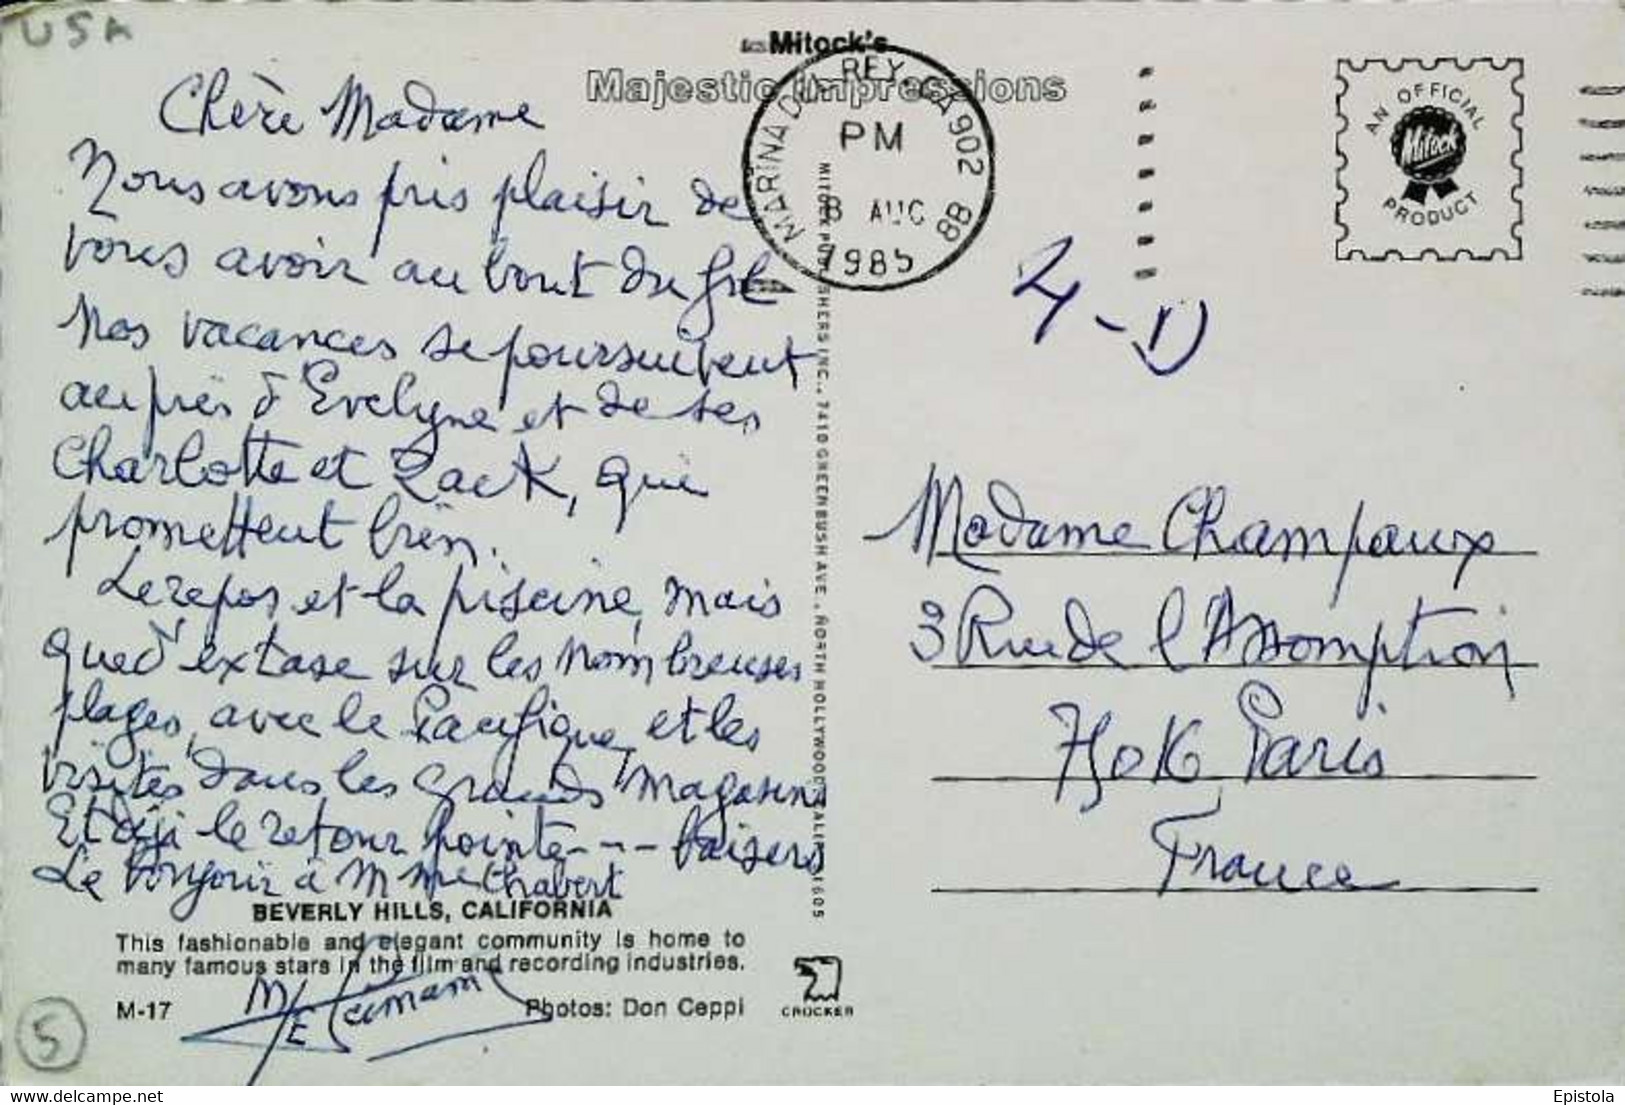 USA
Mitock's
Majestic Impressions
MARINA DEL REY, CA 902
PM
8 AUG
1985
88
AN OFFICIAL
Mitock
PRODUCT
Chère Madame
Nous avons pris plaisir de
vous avoir au bout du fil
Nos vacances se poursuivent
auprès d'Evelyne et de ses
Charlotte et Zack, qui
promettent bien.
Le repos et la piscine, mais
que d'extase sur les nombreuses
plages, avec le Pacifique, et les
visites dans les grands magasins
Et déjà le retour pointe --- baisers
Le bonjour à M Mme Chabert
BEVERLY HILLS, CALIFORNIA
This fashionable and elegant community is home to
many famous stars in the film and recording industries.
M-17
Photos: Don Ceppi
CROCKER
5
MITOCK PUBLISHERS INC., 7410 GREENBUSH AVE., NORTH HOLLYWOOD, CALIF. 91605
Madame Champaux
3 Rue de l'Assomption
75016 Paris
France
Epistola